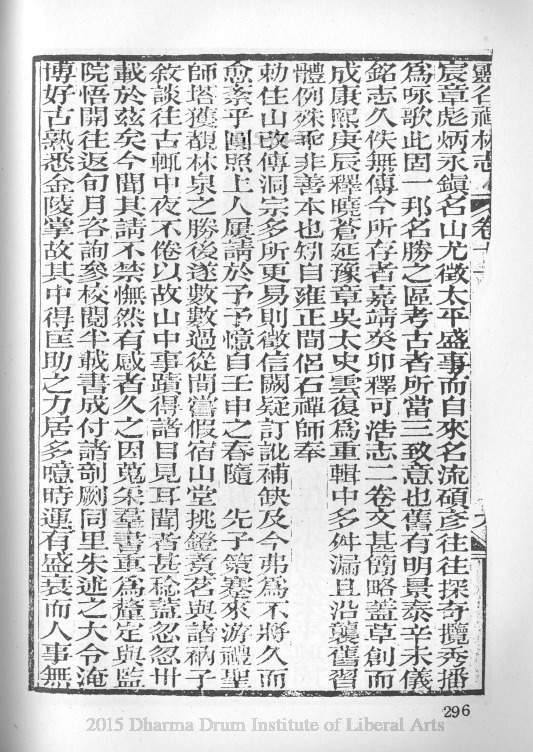 靈谷禪林志 卷十
宸章彪炳永鎭名山尤徵太平盛事而自來名流碩彥往往探奇攬秀播
爲咏歌此固一邦名勝之區考古者所當三致意也舊有明景泰辛未儀
銘志久佚無傳今所存者嘉靖癸卯釋可浩志二卷文甚簡略蓋草創而
成康熙庚辰釋曉蒼延豫章吳太史雲復爲重輯中多舛漏且沿襲舊習
體例殊乖非善本也矧自雍正間侶石禪師奉
勅住山改傳洞宗多所更易則徵信闕疑訂訛補缺及今弗爲不將久而
愈紊乎圓照上人屢請於予予憶自壬申之春隨 先子策蹇來游禮聖
師塔獲覩林泉之勝後遂數數過從間嘗假宿山堂挑鐙瀹茗與諸衲子
敘談往古輒中夜不倦以故山中事蹟得諸目見耳聞者甚稔蓋忽忽卅
載於玆矣今聞其請不禁憮然有感者久之因蒐朱羣書重爲釐定與監
院悟開往返旬月咨詢參校閱半載書成付諸剞劂同里朱述之大令淹
博好古熟悉金陵掌故其中得匡助之力居多噫時運有盛衰而人事無
296
2015 Dharma Drum Institute of Liberal Arts